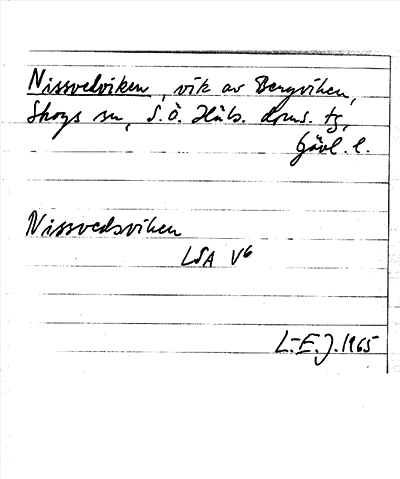 Nissvedviken, vik av Bergviken,
Skogs sn, S. Ö. Häls. doms. tg,
Gävl. l.
Nissvedsviken
LSA V6
L-E. J. 1965